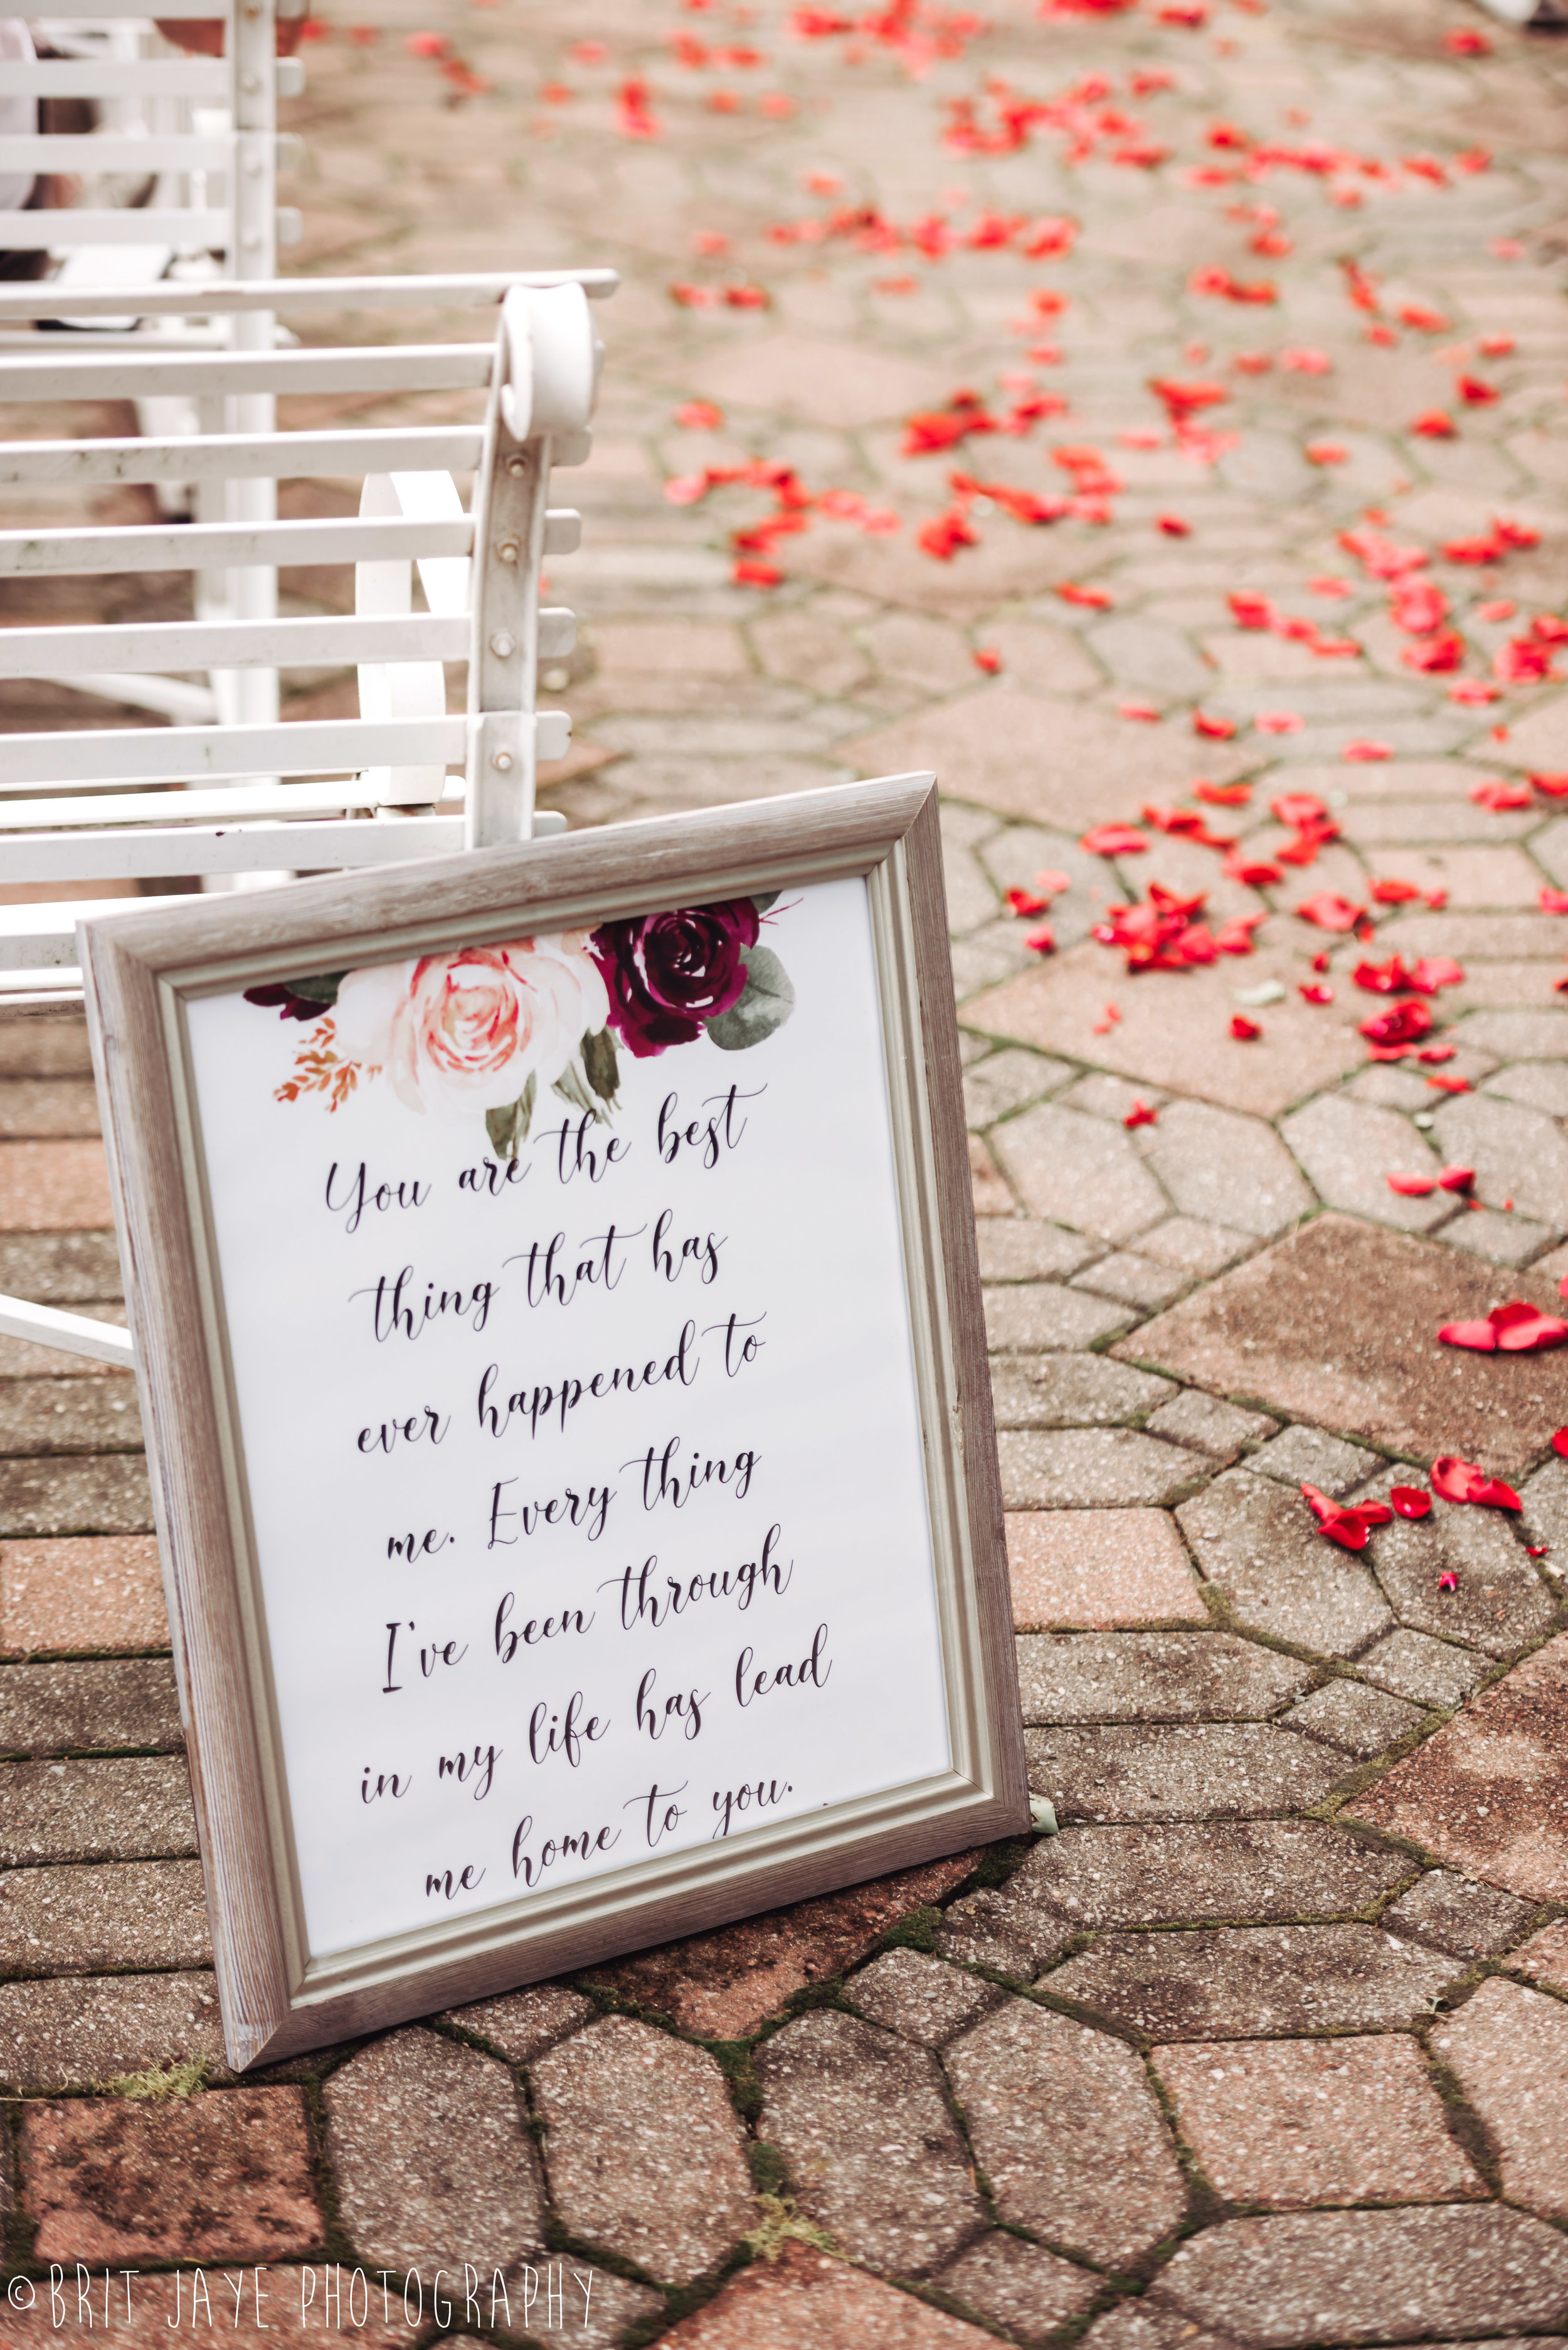 You are the best
thing that has
ever happened to
me. Every thing
I've been through
in my life has lead
me home to you.
© BRIT JAYE PHOTOGRAPHY